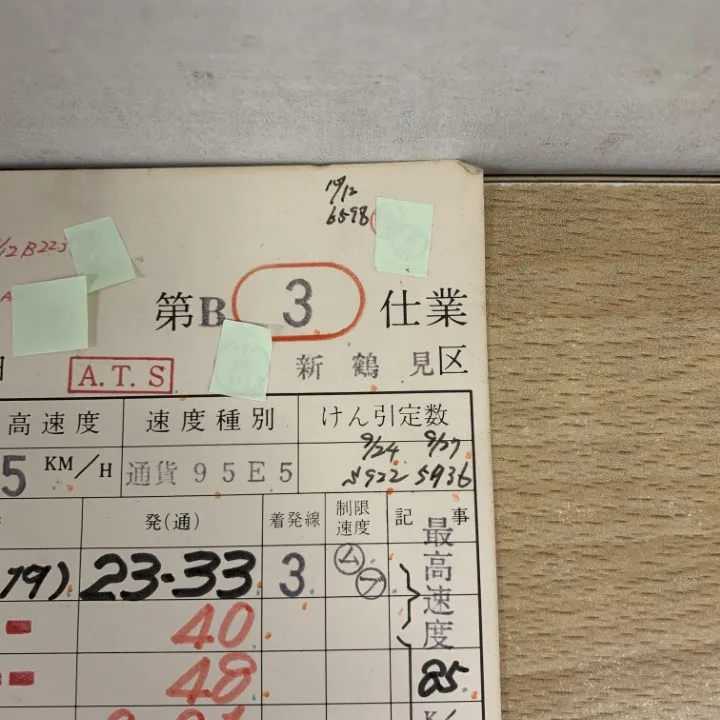 6598
/12 B223
第B 3 仕業
A.T.S
新鶴見区
高速度 速度種別 けん引定数
9/24 9/27
5 KM/H 通貨95E5 5922 5936
発(通) 着発線 制限速度 記事
19) 23-33 3 ム フ 最高速度
40
48 85
K/